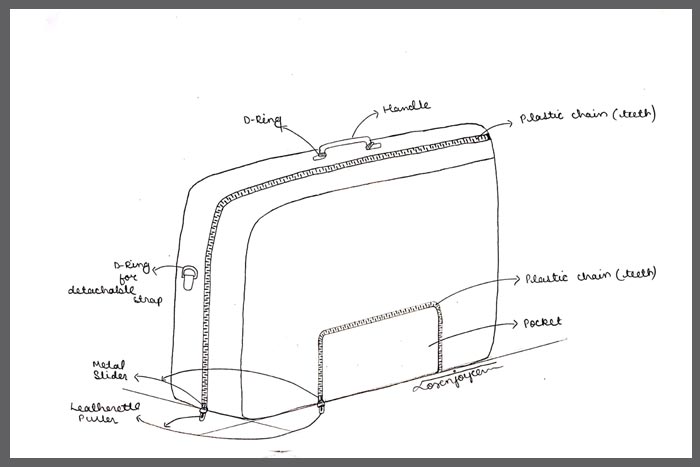 D-Ring
Handle
Plastic chain (teeth)
D-Ring
for
detachable
strap
Plastic chain (teeth)
Pocket
Metal
Slider
Leatherette
Puller